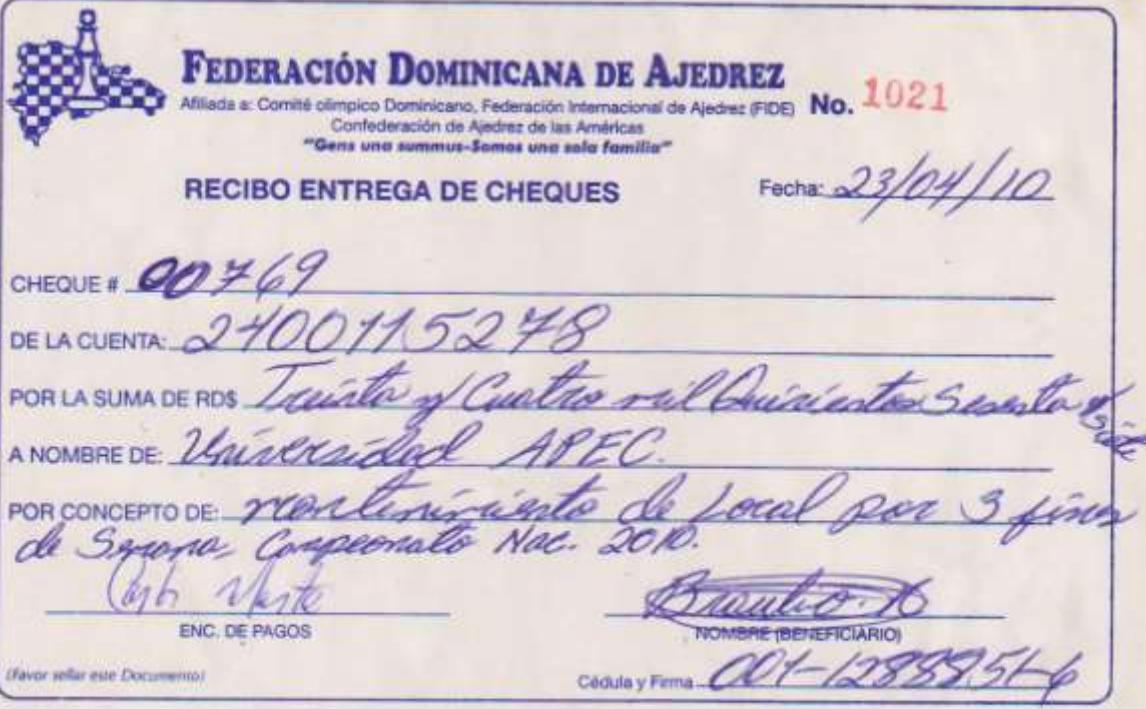 FEDERACIÓN DOMINICANA DE AJEDREZ
Afiliada a: Comité olímpico Dominicano, Federación Internacional de Ajedrez (FIDE) No. 1021
Confederación de Ajedrez de las Américas
"Gens una summus-Somos una sola familia"
RECIBO ENTREGA DE CHEQUES Fecha: 23/04/10
CHEQUE # 00769
DE LA CUENTA: 2400115278
POR LA SUMA DE RD$ Treinta y Cuatro mil Quinientos Sesenta y Siete
A NOMBRE DE: Universidad APEC.
POR CONCEPTO DE: mantenimiento de Local por 3 fines
de Semana, Campeonato Nac. 2010.
ENC. DE PAGOS
Braulio. A
NOMBRE (BENEFICIARIO)
(Favor sellar este Documento)
Cédula y Firma 001-1288851-6